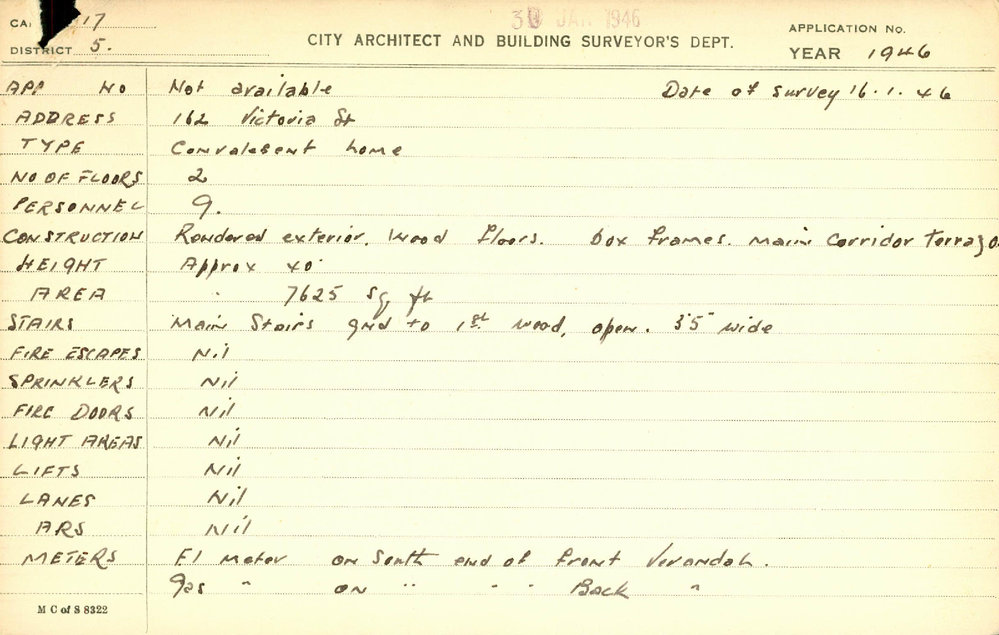 17
DISTRICT 5.
30 JAN 1946
CITY ARCHITECT AND BUILDING SURVEYOR'S DEPT.
APPLICATION No.
YEAR 1946
APP NO Not available Date of survey 16.1.46
ADDRESS 162 Victoria St
TYPE Convalesent home
NO OF FLOORS 2
PERSONNEL 9.
CONSTRUCTION Rendered exterior. Wood floors. box frames. Main Corridor Terrazo.
HEIGHT Approx 40'
AREA 7625 sq ft
STAIRS Main Stairs gnd to 1st wood, open. 3'5" wide
FIRE ESCAPES Nil
SPRINKLERS Nil
FIRE DOORS Nil
LIGHT AREAS Nil
LIFTS Nil
LANES Nil
ARS Nil
METERS El Meter on South end of front Verandah.
Gas " on " " " Back "
M C of S 8322